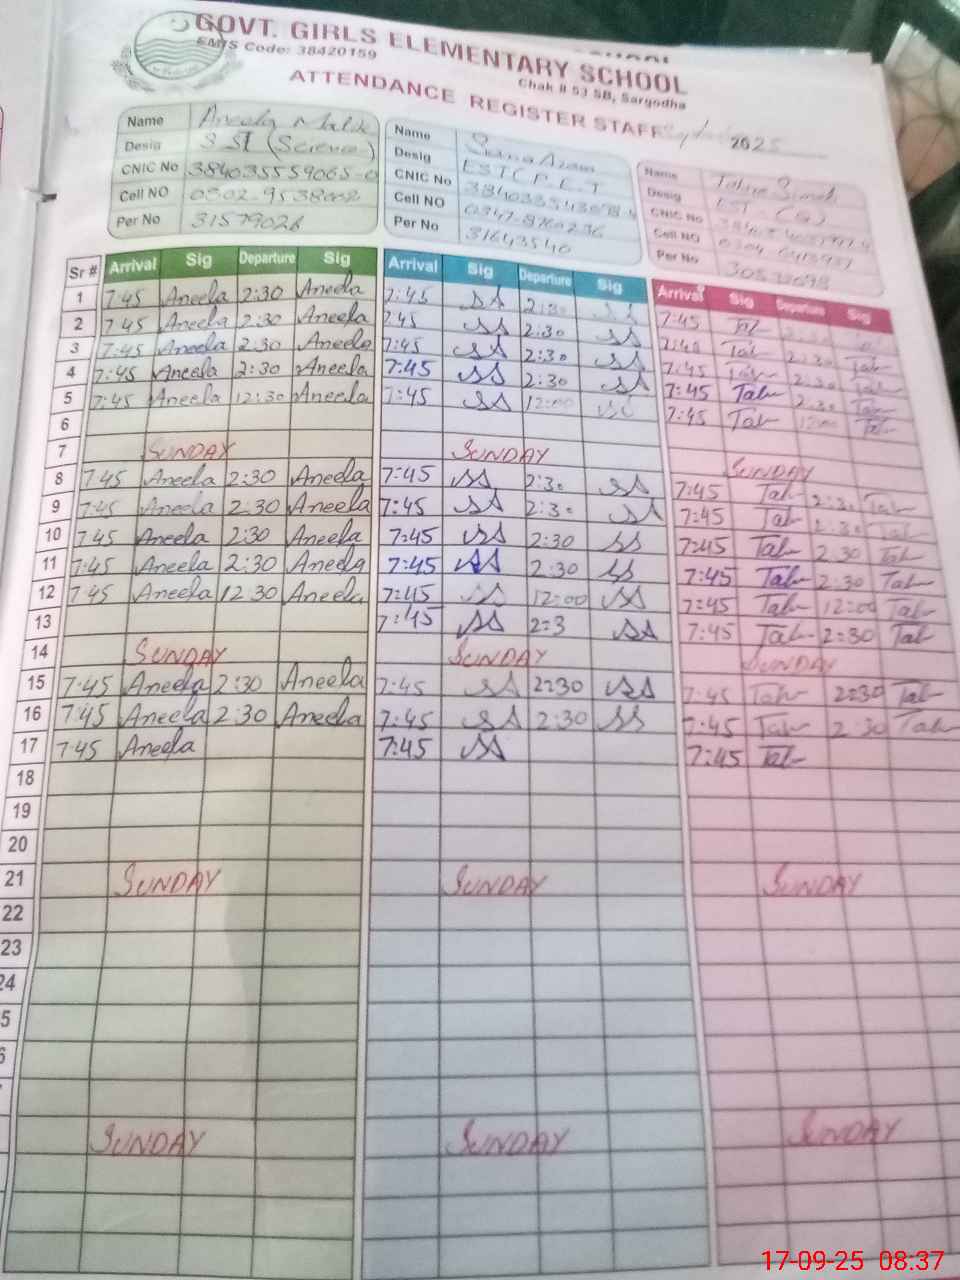 GOVT. GIRLS ELEMENTARY SCHOOL
EMIS Code: 38420159
Chak # 53 SB, Sargodha
ATTENDANCE REGISTER STAFF 2025
Name Aneela Malik
Desig SST (Science)
CNIC No 384035559065-0
Cell NO 0302-9538002
Per No 31579026
Name Saima Azam
Desig EST C P.E.T
CNIC No
Cell NO
Per No 31643540
Name
Desig
CNIC No
Cell NO
Per No
Sr # Arrival Sig Departure Sig Arrival Sig Departure Sig Arrival Sig Departure Sig
1 7:45 Aneela 2:30 Aneela 7:45 SA 2:30 7:45 Tal
2 7:45 Aneela 2:30 Aneela 7:45 SS 2:30 SS Tal 2:30 Tal
3 7:45 Aneela 2:30 Aneela 7:45 SS 2:30 SS 7:45 Tal 2:30 Tal
4 7:45 Aneela 2:30 Aneela 7:45 SS 2:30 SS 7:45 Tal 2:30 Tal
5 7:45 Aneela 12:30 Aneela 7:45 SS 12:00 SS 7:45 Tal 12:00 Tal
6
7 SUNDAY SUNDAY SUNDAY
8 7:45 Aneela 2:30 Aneela 7:45 SS 2:30 SS 7:45 Tal 2:30 Tal
9 7:45 Aneela 2:30 Aneela 7:45 SS 2:30 SA 7:45 Tal 2:30 Tal
10 7:45 Aneela 2:30 Aneela 7:45 SS 2:30 SS 7:45 Tal 2:30 Tal
11 7:45 Aneela 2:30 Aneela 7:45 SS 2:30 SS 7:45 Tal 2:30 Tal
12 7:45 Aneela 12 30 Aneela 7:45 SS 12:00 SS 7:45 Tal 12:00 Tal
13 7:45 SS 2:3 SS 7:45 Tal 2:30 Tal
14 SUNDAY SUNDAY SUNDAY
15 7:45 Aneela 2:30 Aneela 7:45 SS 2:30 SS 7:45 Tal 2:30 Tal
16 7:45 Aneela 2:30 Aneela 7:45 SS 2:30 SS 7:45 Tal 2 30 Tal
17 7 45 Aneela 7:45 SS 7:45 Tal
18
19
20
21 SUNDAY SUNDAY SUNDAY
22
23
24
5
SUNDAY SUNDAY SUNDAY
17-09-25 08:37